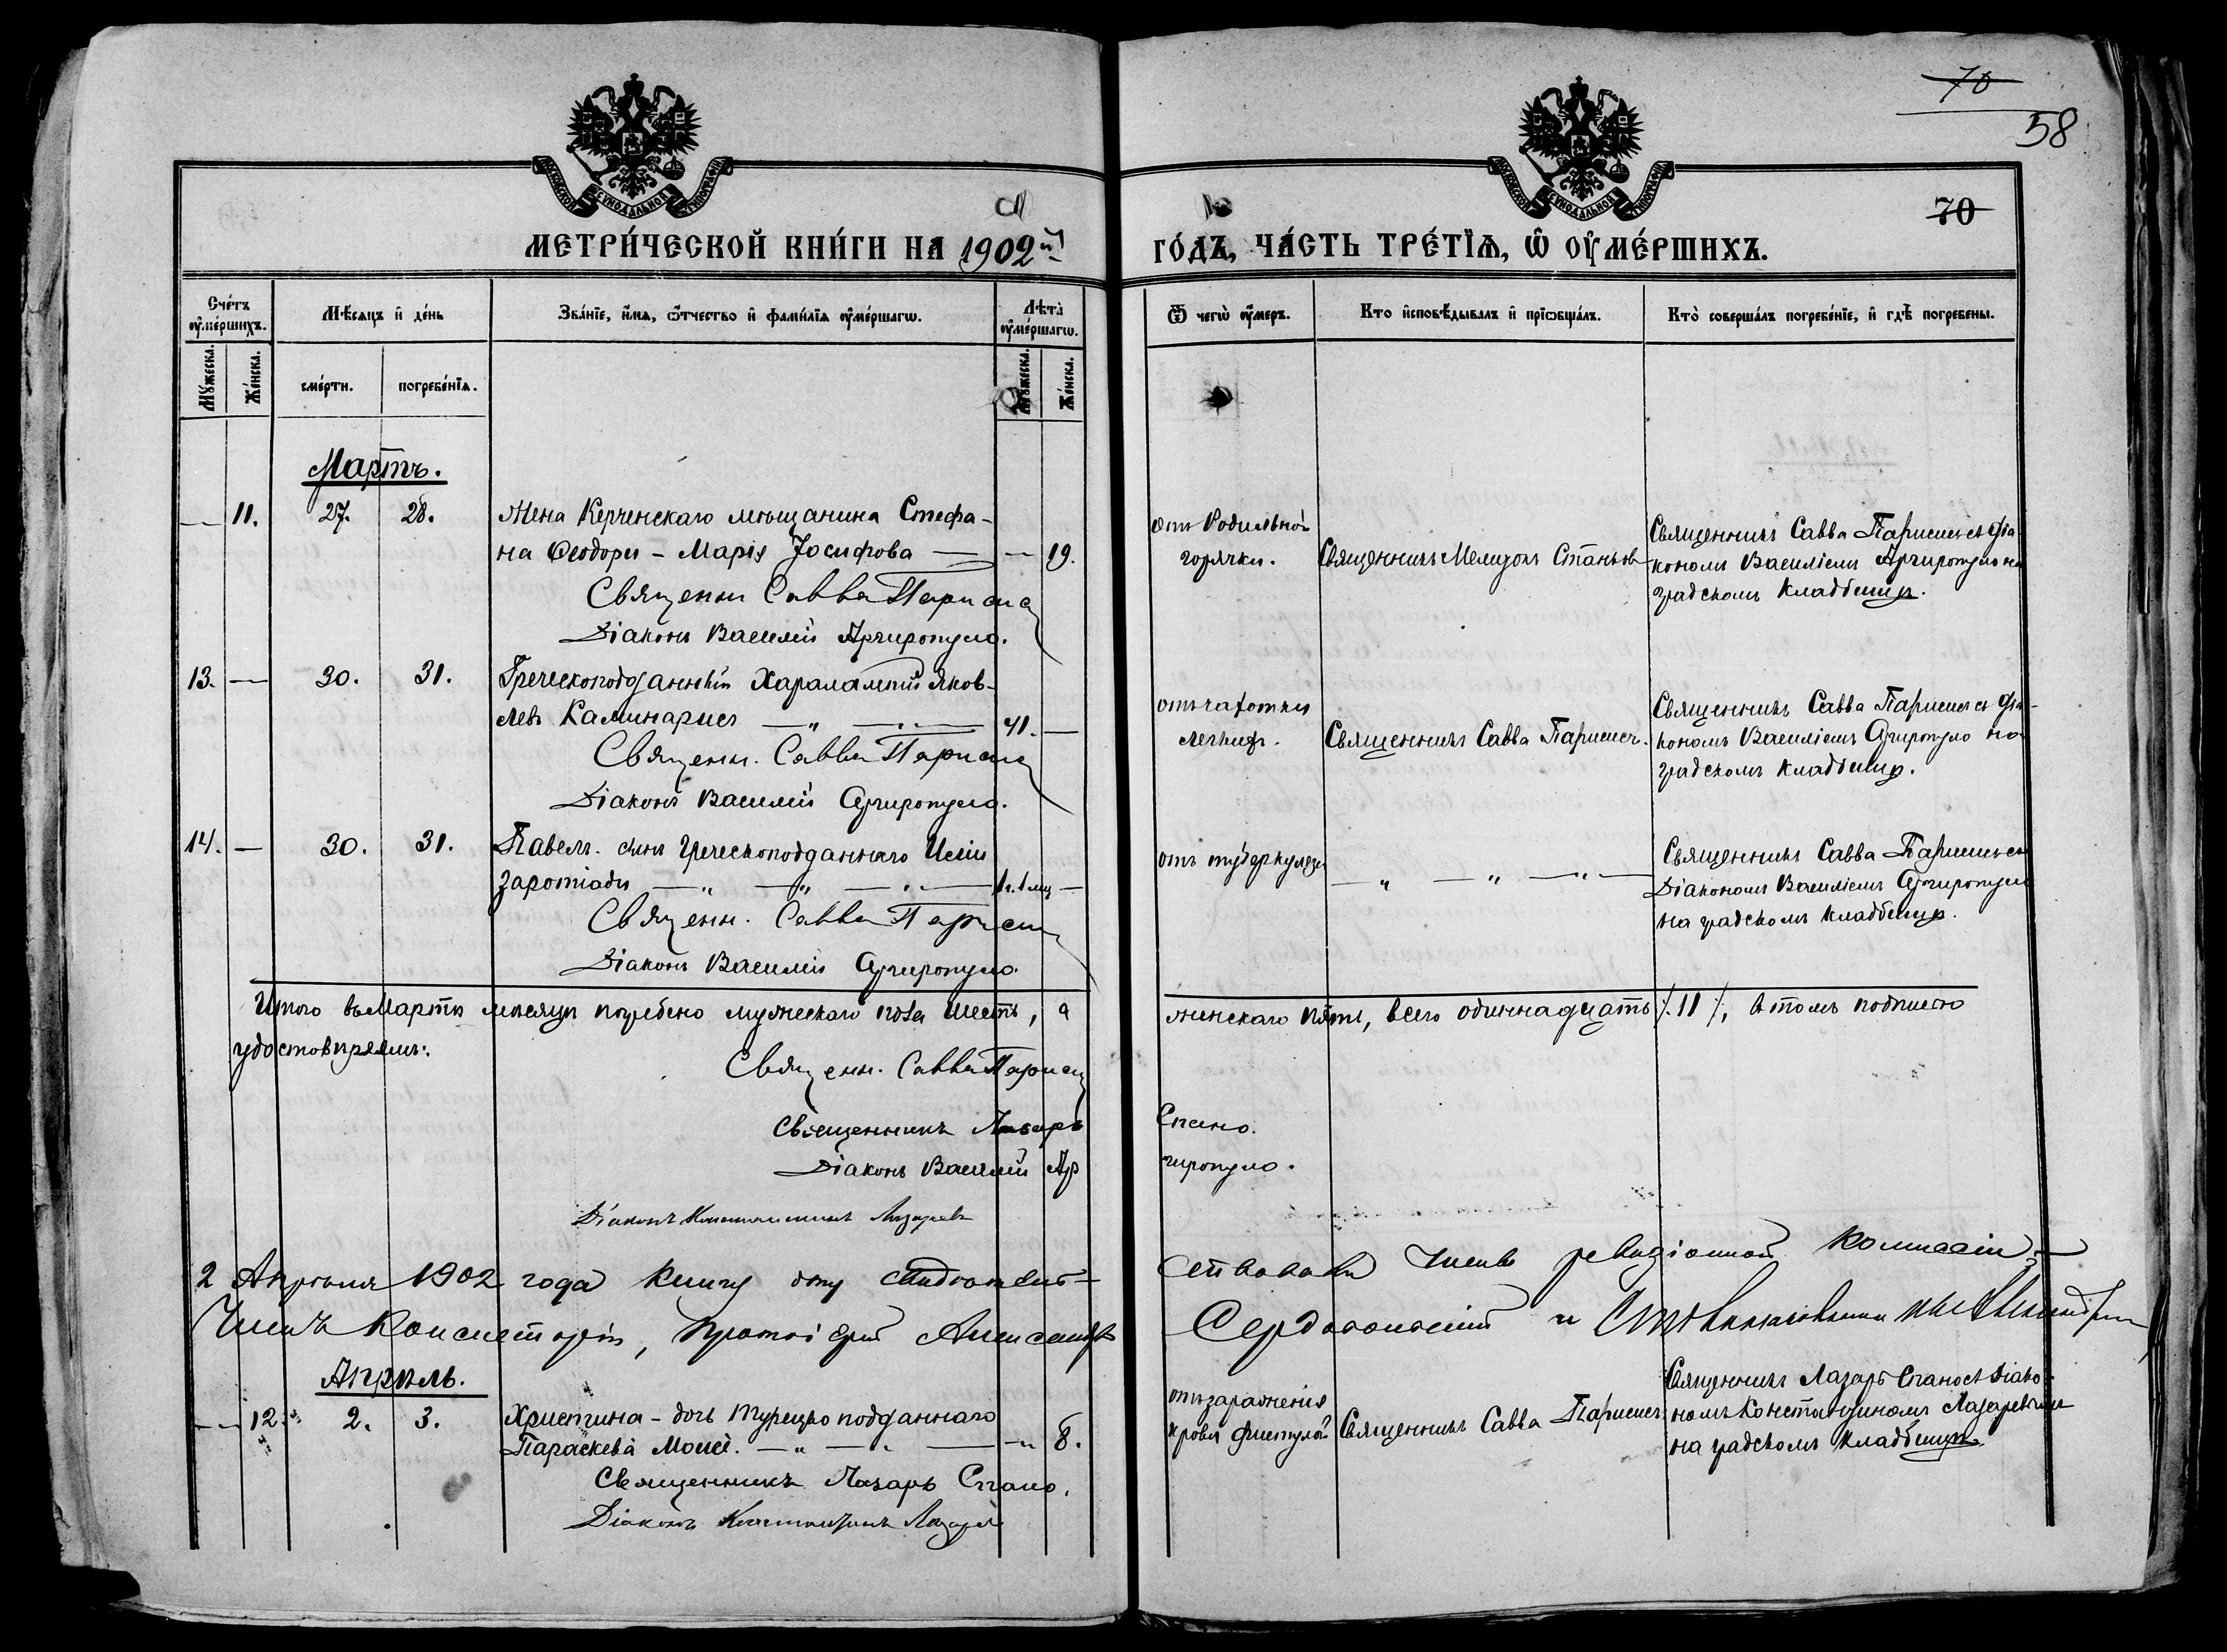 70
58
70
МОСКОВСКОЙ СѴНОДАЛЬНОЙ ТИПОГРАФІИ
МОСКОВСКОЙ СѴНОДАЛЬНОЙ ТИПОГРАФІИ
МЕТРИ́ЧЕСКОЙ КНИ́ГИ НА 1902й
ГО́ДЪ, ЧА́СТЬ ТРЕ́ТІѦ, Ѽ ОУ҆МЕ́РШИХЪ.
Сче́тъ оу҆ме́ршихъ.
Мꙋ́жеска.
Же́нска.
Мѣ́сѧцъ и҆ де́нь
сме́рти.
погребе́нїѧ.
Зва́нїе, и҆́мѧ, ѻ҆́тчество и҆ фами́лїѧ оу҆ме́ршагѡ.
Лѣ́та оу҆ме́ршагѡ.
Мꙋ́жеска.
Же́нска.
Ѿ чегѡ̀ оу҆́меръ.
Кто̀ и҆сповѣ́дывалъ и҆ прїѡбща́лъ.
Кто̀ соверша́лъ погребе́нїе, и҆ гдѣ̀ погребены.
Мартъ.
— 11. 27. 28. Жена Керченскаго мѣщанина Стефа-
на Ѳеодори - Марія Іосифова — — 19.
Священн Савва Париси
Діаконъ Василій Аргиропуло.
отъ Родильной
горячки.
Священникъ Мелитонъ Станьовъ
Священникъ Савва Парисисъ съ діа-
кономъ Василіемъ Аргиропуло на
градскомъ кладбищѣ.
13. — 30. 31. Греческоподданный Харалампій Яков-
левъ Калинарисъ — „ — „ — 41. —
Священн. Савва Париси
Діаконъ Василій Аргиропуло.
отъ чахотки
легкихъ.
Священникъ Савва Парисисъ.
Священникъ Савва Парисисъ съ діа-
кономъ Василіемъ Аргиропуло на
градскомъ кладбищѣ.
14. — 30. 31. Павелъ. сынъ Греческоподданнаго Иліи
Заротіади — „ — „ — „ — 1 г. 1 мц —
Священн. Савва Париси
Діаконъ Василій Аргиропуло.
отъ туберкулеза
— „ — „ — „ —
Священникъ Савва Парисисъ съ
Діакономъ Василіемъ Аргиропуло
на градскомъ кладбищѣ.
Итого въ Мартѣ мѣсяцѣ погребено мужескаго пола шесть, а
женскаго пять, всего одиннадцать /. 11 /., въ томъ подписью
удостовѣряемъ:
Священн. Савва Париси
Священникъ Лазарь Спано.
Діаконъ Василій Аргиропуло.
Діаконъ Константинъ Лазаревъ
2 Апрѣля 1902 года книгу эту свидѣтель-
ствовали Члены ревизіонной коммиссіи:
Членъ Консисторіи, Протоіерей Александръ
Сердобольскій и
Апрѣль.
— 12. 2. 3. Христина - дочь Турецко подданнаго
Параскева Моисе. — „ — „ — — „ 8.
Священникъ Лазарь Спано.
Діаконъ Константинъ Лазаревъ
отъ зараженія
крови фистулой
Священникъ Савва Парисисъ
Священникъ Лазарь Спано съ Діако-
номъ Константиномъ Лазаревымъ
на градскомъ кладбищѣ.